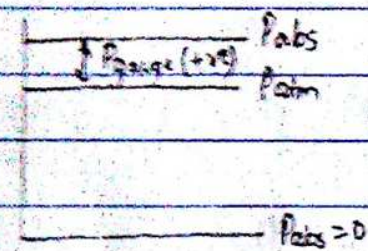 Pabs
Pgauge (+ve)
Patm
Pabs = 0